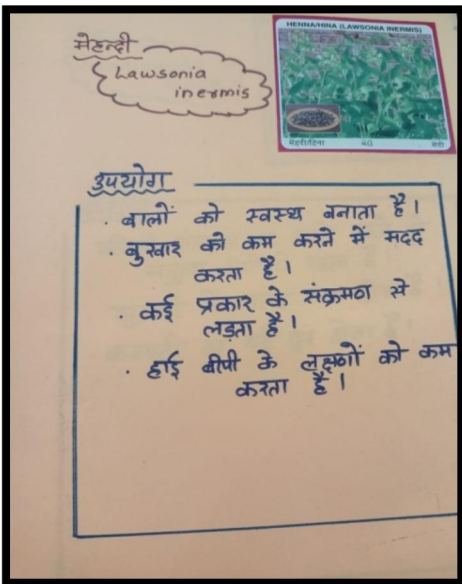 मेहन्दी
Lawsonia
inermis
HENNA/HINA (LAWSONIA INERMIS)
मेहंदी/हिना
उपयोग
. बालों को स्वस्थ बनाता है।
. बुखार को कम करने में मदद
करता है।
. कई प्रकार के संक्रमण से
लड़ता है।
. हाई बीपी के लक्षणों को कम
करता है।